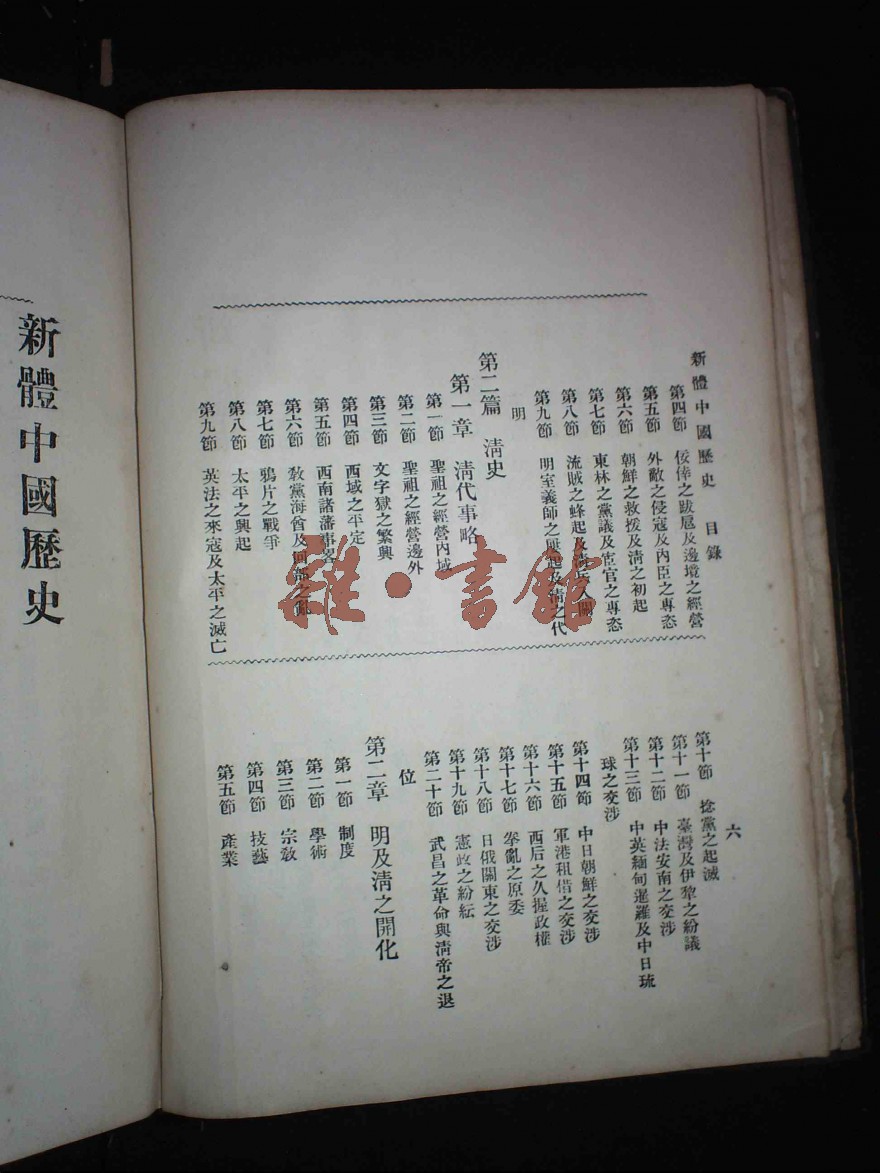 新體中國歷史 目錄
第四節 佞倖之跋扈及邊境之經營
第五節 外敵之侵寇及內臣之專恣
第六節 朝鮮之救援及清之初起
第七節 東林之黨議及宦官之專恣
第八節 流賊之蜂起及清兵入關
第九節 明室義師之屢起及清之代
明
第二篇 清史
第一章 清代事略
第一節 聖祖之經營內域
第二節 聖祖之經營邊外
第三節 文字獄之繁興
第四節 西域之平定
第五節 西南諸藩事畧
第六節 教黨海酋及回部之亂
第七節 鴉片之戰爭
第八節 太平之興起
第九節 英法之來寇及太平之滅亡
六
第十節 捻黨之起滅
第十一節 臺灣及伊犂之紛議
第十二節 中法安南之交涉
第十三節 中英緬甸暹羅及中日琉
球之交涉
第十四節 中日朝鮮之交涉
第十五節 軍港租借之交涉
第十六節 西后之久握政權
第十七節 拳亂之原委
第十八節 日俄關東之交涉
第十九節 憲政之紛紜
第二十節 武昌之革命與清帝之退
位
第二章 明及清之開化
第一節 制度
第二節 學術
第三節 宗教
第四節 技藝
第五節 產業
新體中國歷史
雜·書館